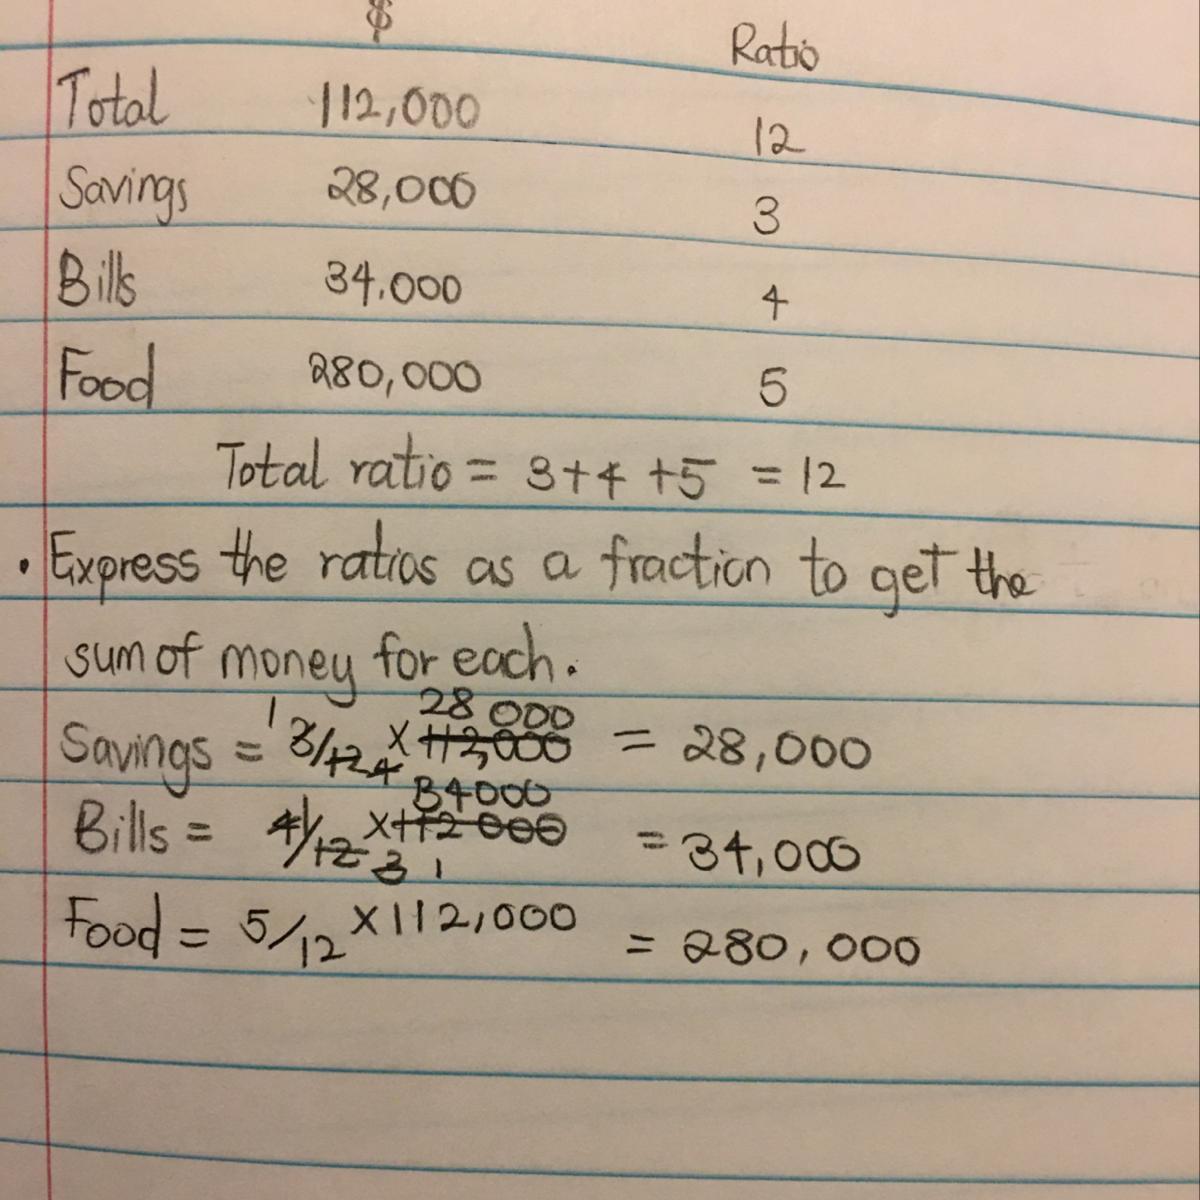 $ Ratio
Total 112,000 12
Savings 28,000 3
Bills 34.000 4
Food 280,000 5
Total ratio = 3+4+5 = 12
. Express the ratios as a fraction to get the
sum of money for each.
1 28 000
Savings = 3/12 4 x 112,000 = 28,000
34000
Bills = 4/12 x 112 000 = 34,000
3 1
Food = 5/12 x 112,000 = 280,000